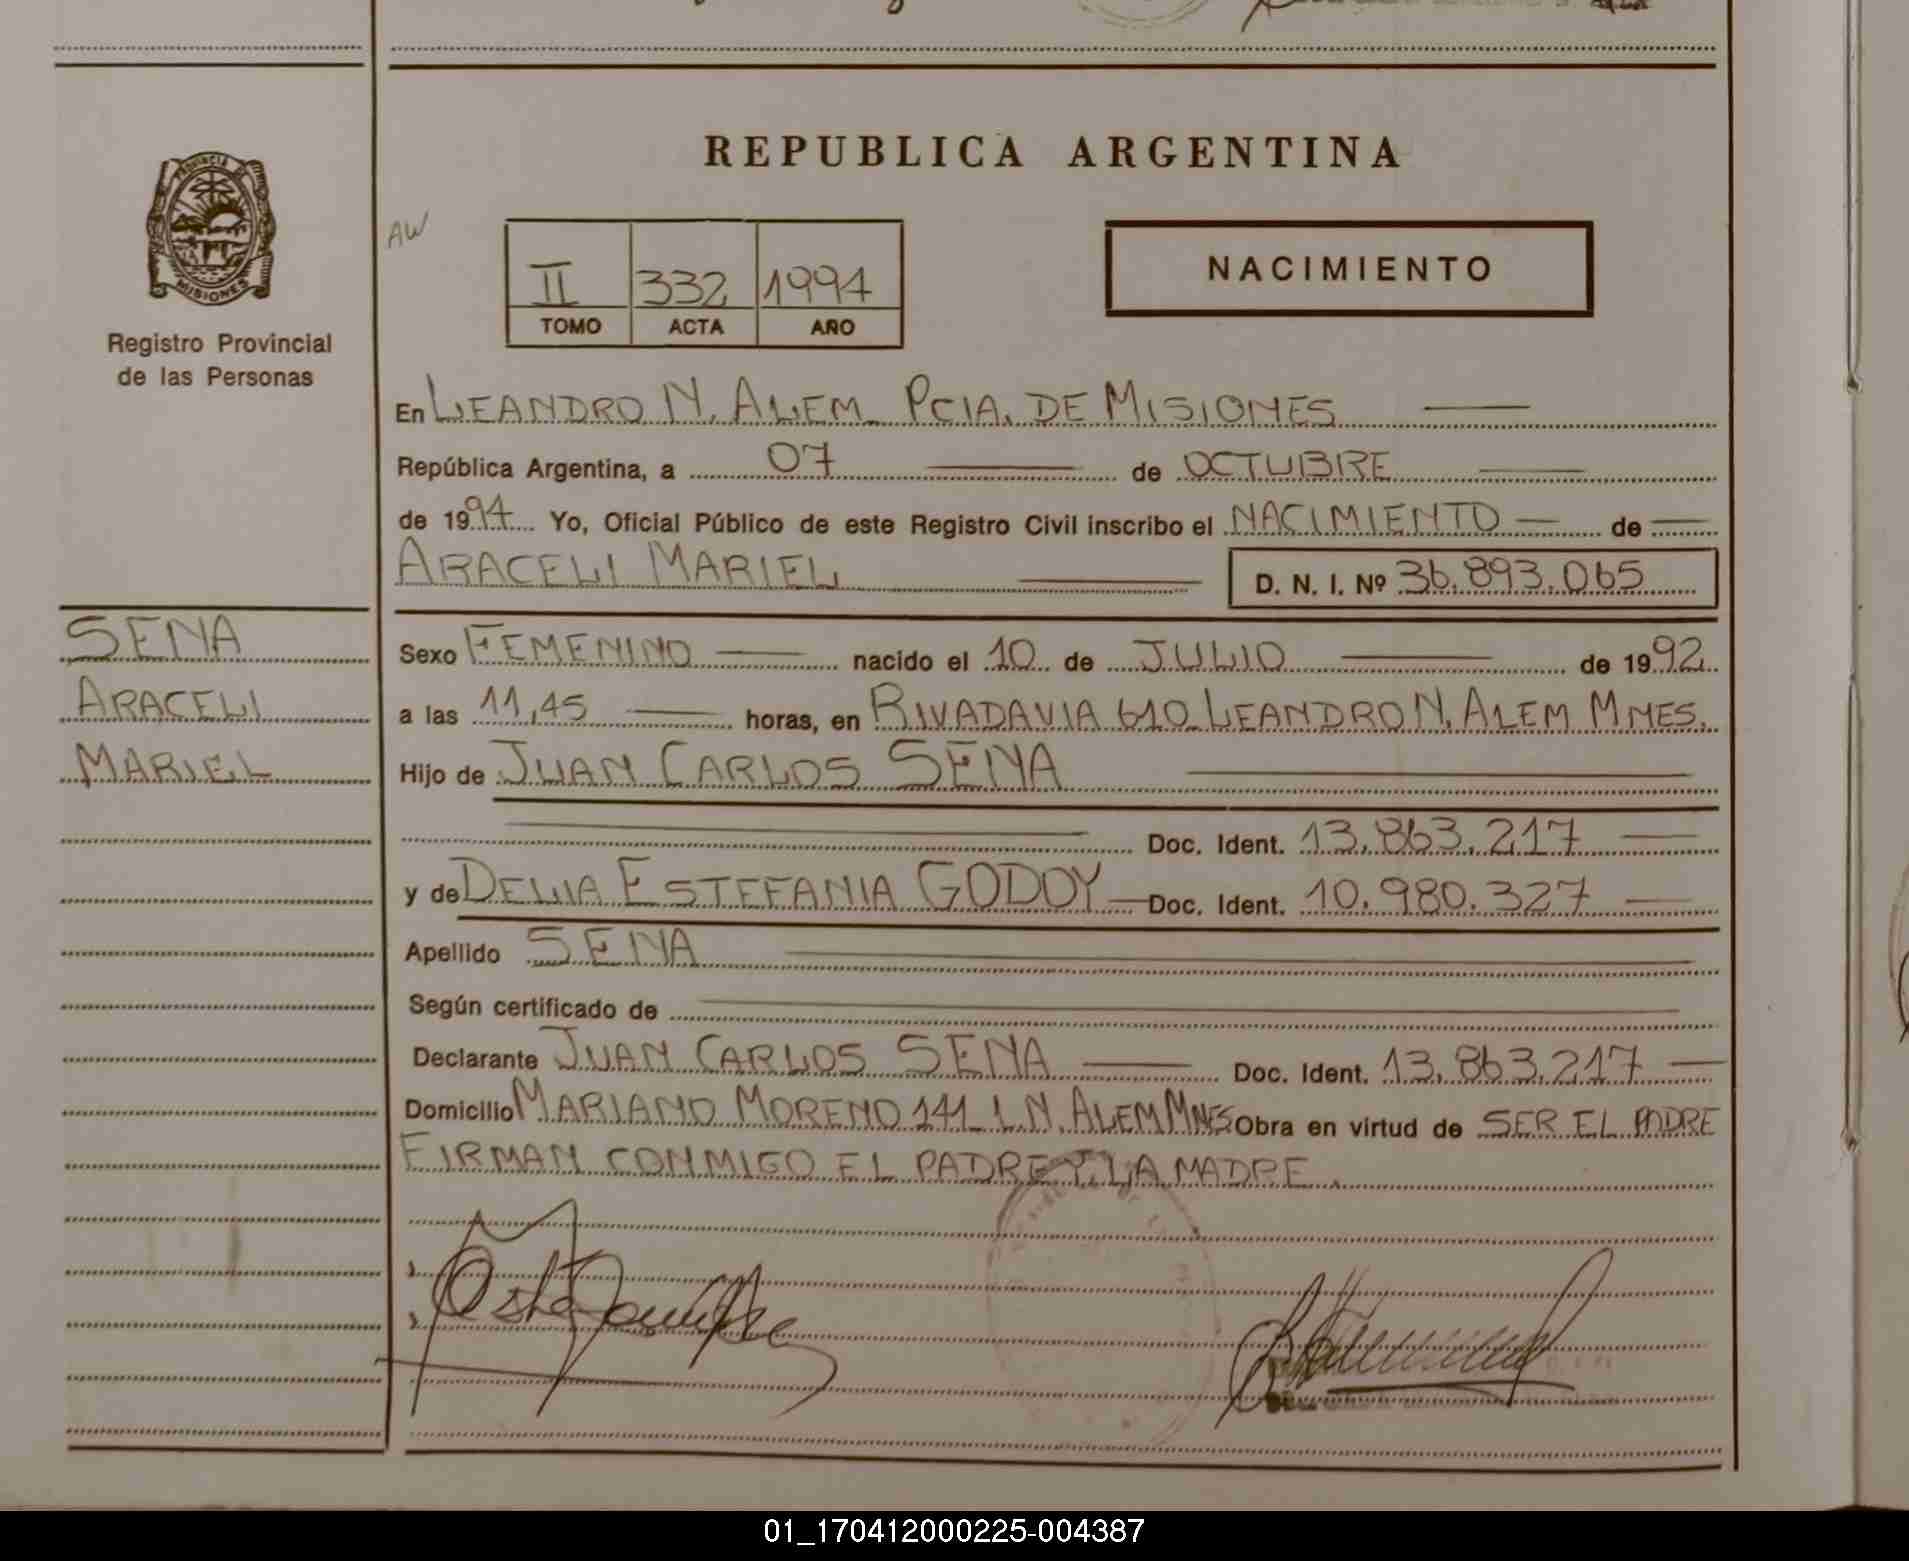 REPUBLICA ARGENTINA
PROVINCIA DE
MISIONES
Registro Provincial
de las Personas
AW
II 332 1994
TOMO ACTA AÑO
NACIMIENTO
En LEANDRO N. ALEM PCIA. DE MISIONES
República Argentina, a 07 de OCTUBRE
de 1994 Yo, Oficial Público de este Registro Civil inscribo el NACIMIENTO de
ARACELI MARIEL D. N. I. Nº 36.893.065
SENA
ARACELI
MARIEL
Sexo FEMENINO nacido el 10 de JULIO de 1992
a las 11,45 horas, en RIVADAVIA 610 LEANDRO N. ALEM MNES.
Hijo de JUAN CARLOS SENA
Doc. Ident. 13.863.217
y de DELIA ESTEFANIA GODOY Doc. Ident. 10.980.327
Apellido SENA
Según certificado de
Declarante JUAN CARLOS SENA Doc. Ident. 13.863.217
Domicilio MARIANO MORENO 141 L.N. ALEM MNES Obra en virtud de SER EL PADRE
FIRMAN CONMIGO EL PADRE Y LA MADRE.
01_170412000225-004387